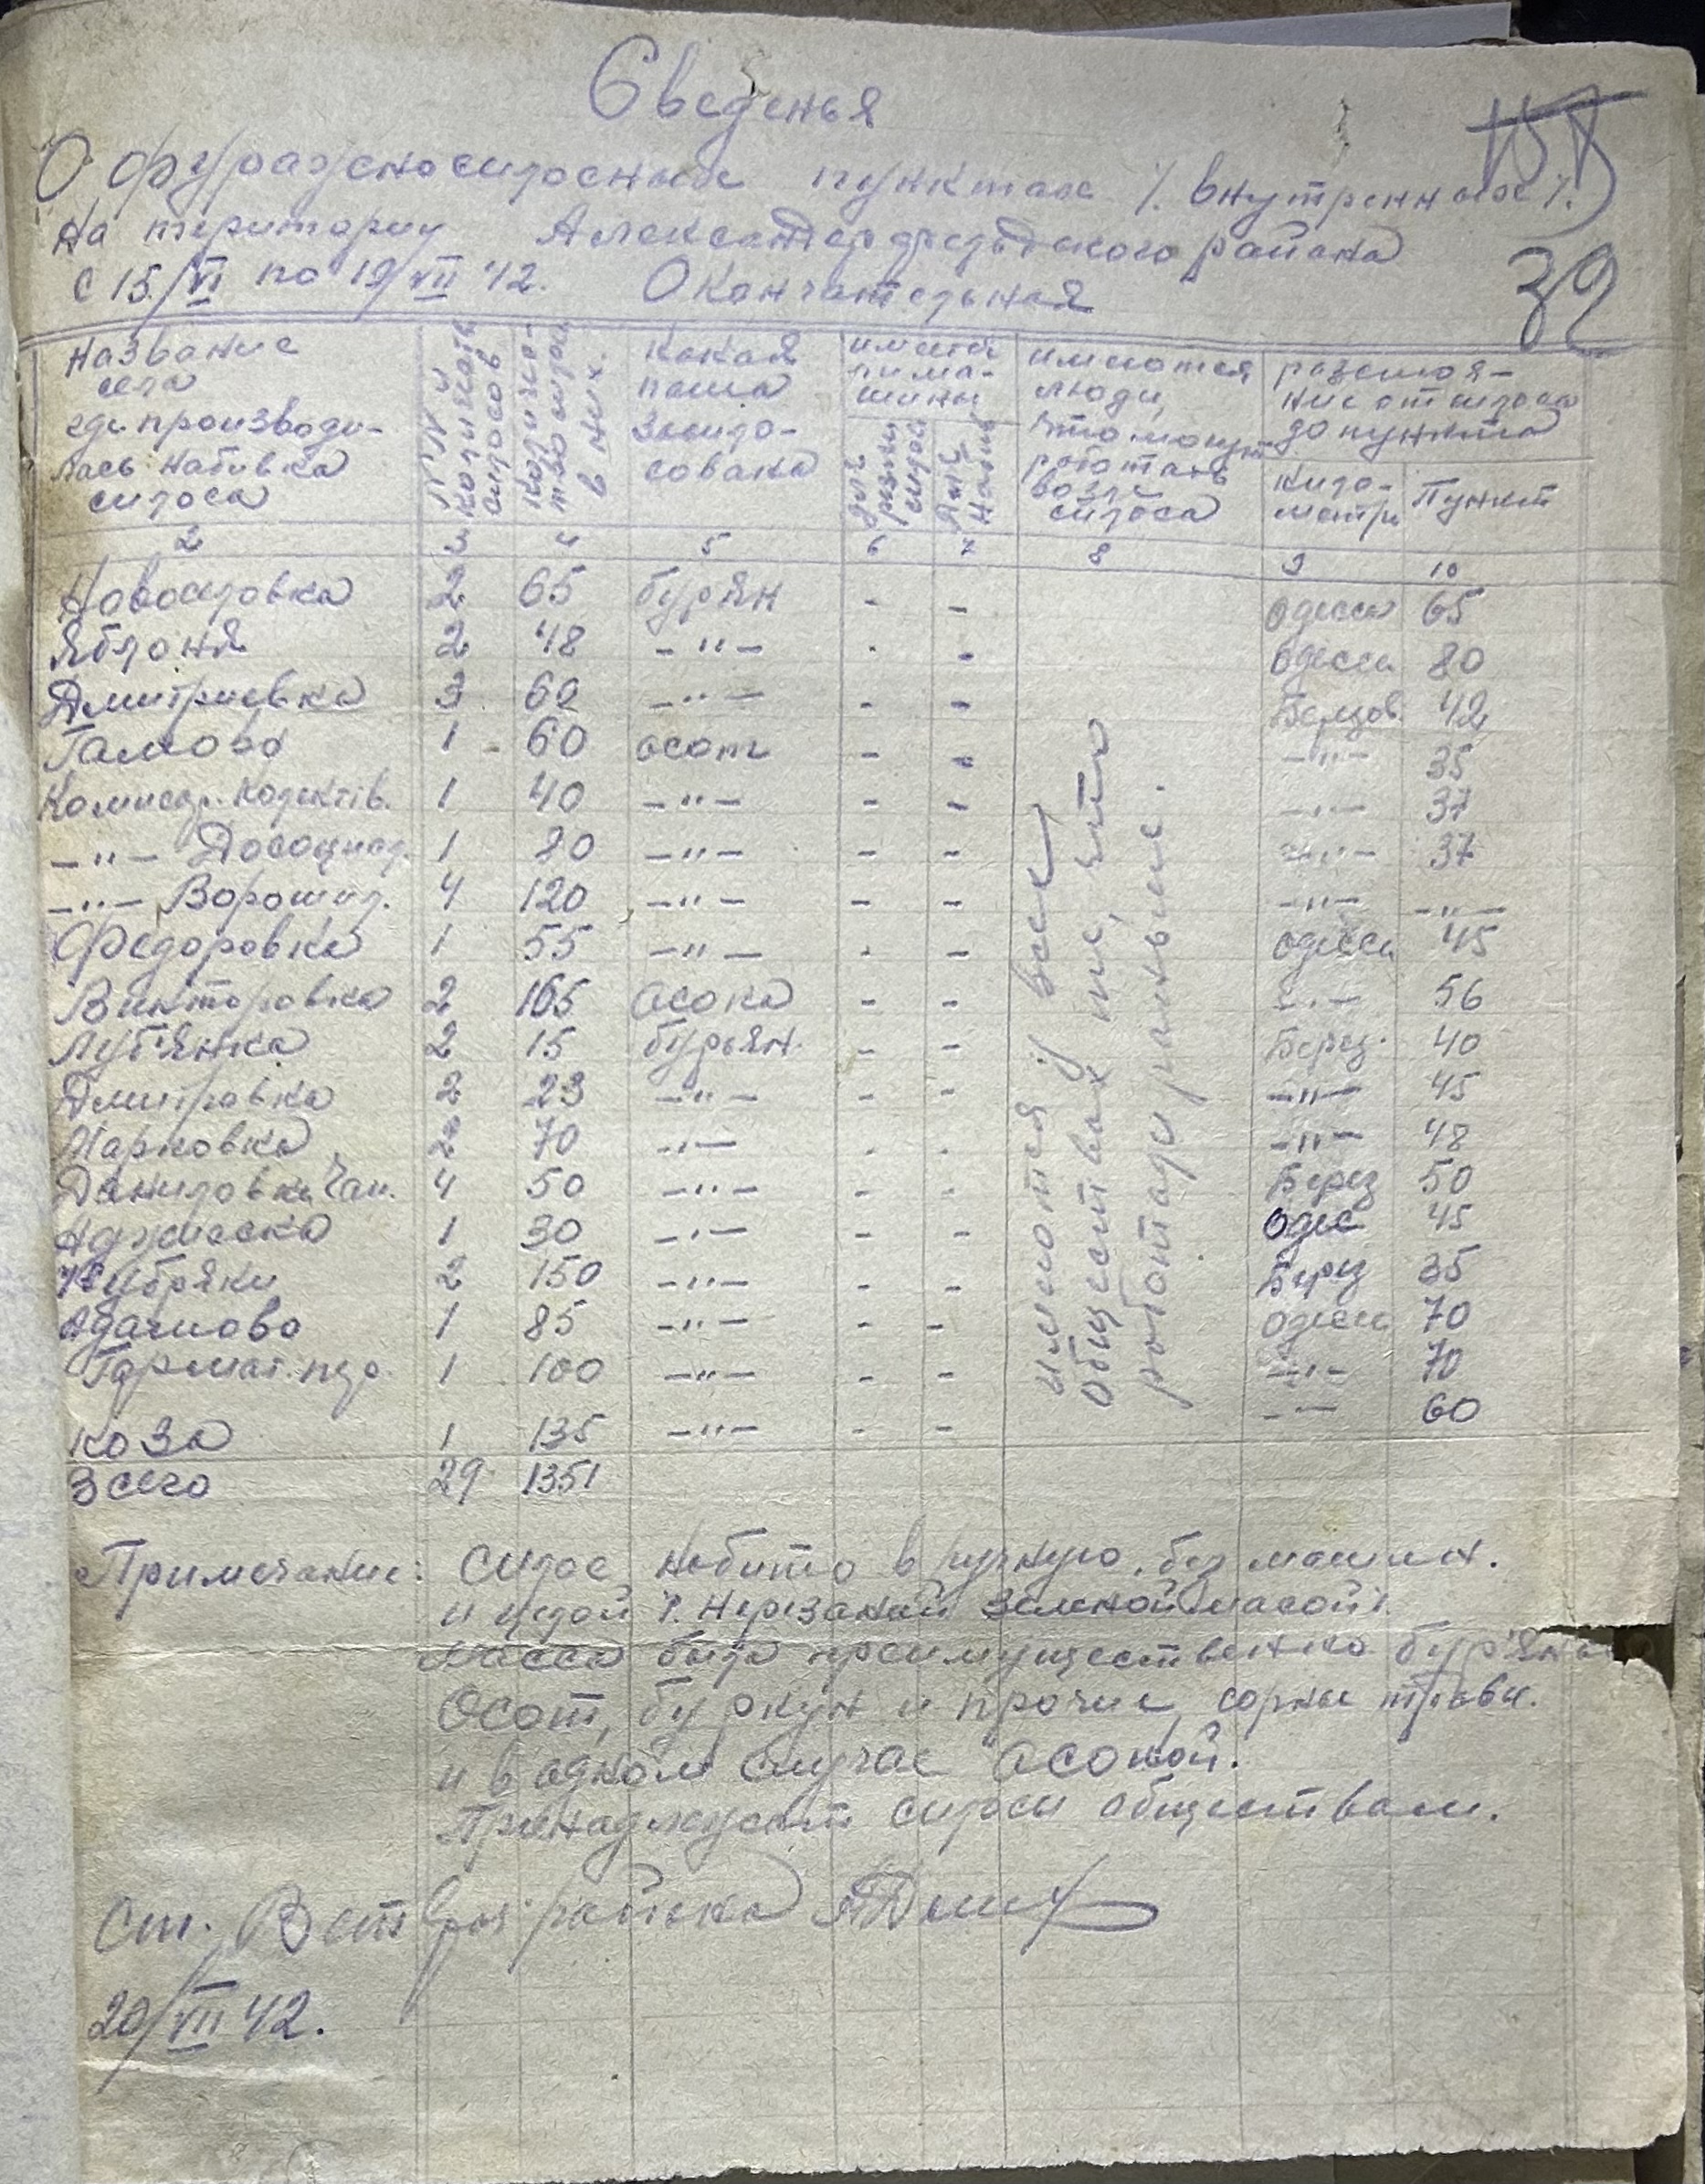 Сведенья
О фуражносилосных пунктах /. внутренных /.
На територии Александерфельдского района
с 15/VI по 19/VII 42. Окончательная
32
Название села где производилась набивка силоса
№№ и количеств силосов
количество силоса в них.
какая паша засилосована
имеютс ли машины
для резки силоса
для набив
имеются люди, что могут работать возле силоса
разстояние от силоса до пункта
Кило-метри
Пункт
2 3 4 5 6 7 8 9 10
Новоселовка 2 65 бурян - - Одесса 65
Яблоня 2 48 -"- - - Одесса 80
Дмитриевка 3 62 -"- - - Березов. 42
Гамово 1 60 осот - - -"- 35
Комисар. Колектів. 1 40 -"- - - -"- 37
-"- Досоциал. 1 80 -"- - - -"- 37
-"- Ворошил. 4 120 -"- - - -"- -"-
Федоровка 1 55 -"- - - Одесса 45
Викторовка 2 165 Осока - - -"- 56
Луб'янка 2 15 бурьян. - - Берез. 40
Дмитровка 2 23 -"- - - -"- 45
Марковка 2 70 -"- - - -"- 48
Даниловка 4 50 -"- - - Берез 50
Аджиаска 1 30 -"- - - Одес 45
Кубряки 2 150 -"- - - Берез 35
Адамово 1 85 -"- - - Одесса 70
Гармат. 1 100 -"- - - -"- 70
Коза 1 135 -"- - - -"- 60
имеются у всех
обществах те, что
работали раньше.
Всего 29 1351
Примечание: Силос набито в ручную, без машин.
и целой /. Нерезаной зеленой масой /.
Масса была преимущественно бур'яна
Осот, буркун и прочие сорные травы.
и в одном случае "осокой.
Принадлежат силосы обществам.
Ст. Вет врач района
20/VII 42.